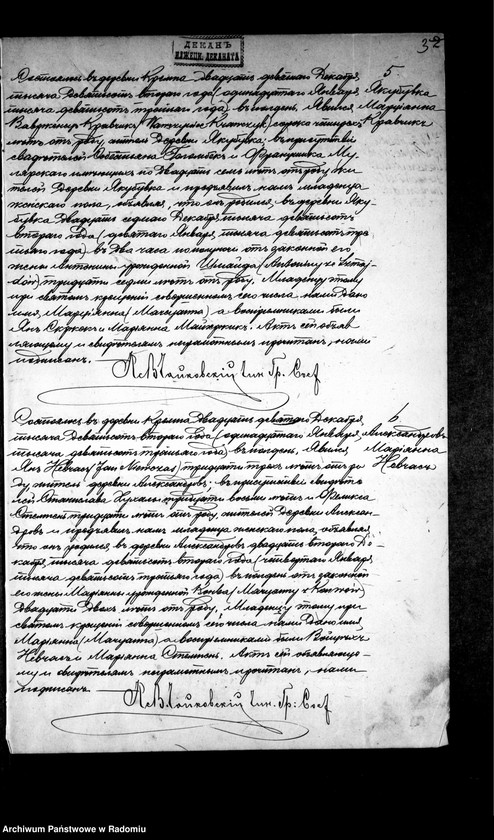 ДЕКАНЪ
ИЛЖЕЦК. ДЕКАНАТА
32
5
Якубувка
Марiянна
Кравчикъ
Состоялось въ деревни Крэмпа двадцать девятаго Декабря,
тысяча девятьсотъ второго года (одинадцатаго Января
тысяча девятьсотъ третьяго года) въ полдень. Явился
Кравчикъ сорока четырехъ
лѣтъ отъ роду, житель деревни Якубувка, въ присутствiи
свидѣтелей и Францишка Му-
лярскаго имѣющихъ по двадцать семь лѣтъ отъ роду жи-
телей деревни Якубувка и предъявилъ намъ младенца
женскаго пола, объявляя, что онъ родился въ деревни Яку-
бувка двадцать седьмаго Декабря, тысяча девятьсотъ
второго года (девятаго Января, тысяча девятьсотъ тре-
тьяго года) въ два часа пополуночи отъ законной его
жены Антонины урожденной
тридцати седми лѣтъ отъ роду. Младенцу тому
при святомъ крещенiи совершенномъ сего числа нами дано
имя, Марiянна (Maryanna) а воспрiемниками были
Янъ и Марiянна Акть сей объяв-
ляющему и свидѣтелямъ неграмотнымъ прочтенъ, нами
подписанъ.
Чин. Гр. Сост
6
Александровъ
Марiянна
Невчасъ
Состоялось въ деревни Крэмпа двадцать девятаго Декабря,
тысяча девятьсотъ второго года (одинадцатаго Января,
тысяча девятьсотъ третьяго года) въ полдень, Явился
Янъ Невчасъ тридцати трехъ лѣтъ отъ ро-
ду житель деревни Александровъ, въ присутствiи свидѣте-
лей Станислава тридцати восьми лѣтъ и
Стемпень тридцати лѣтъ отъ роду, жителей деревни Алексан-
дровъ и предъявилъ намъ младенца женскаго пола, объявляя,
что онъ родился въ деревни Александровъ двадцать второго Де-
кабря, тысяча девятьсотъ второго года (четвертаго Января
тысяча девятьсотъ третьяго года) въ полдень отъ законной
его жены Марiянны урожденной
двадцати двохъ лѣтъ отъ роду. Младенцу тому при
святомъ крещенiи совершенномъ сего числа нами дано имя,
Марiянна (Maryanna) а воспрiемниками были Войцехъ
Невчасъ и Марiянна Стемпень. Актъ сей объявляюще-
му и свидѣтелямъ неграмотнымъ прочтенъ, нами
подписанъ.
Чин. Гр. Сост
Archiwum Państwowe w Radomiu